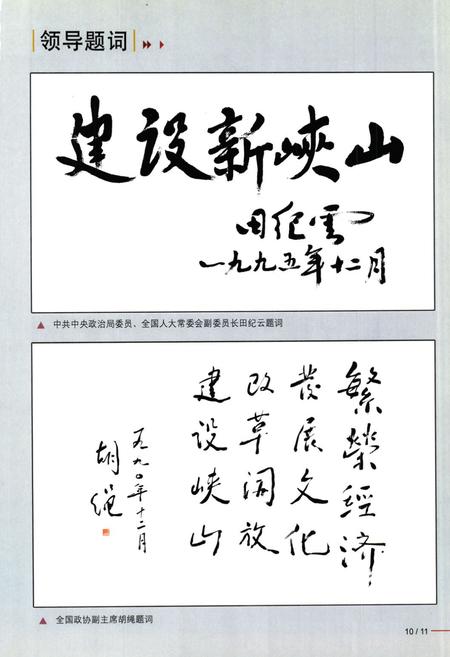 领导题词
建设新峡山
田纪云
一九九五年十二月
中共中央政治局委员、全国人大常委会副委员长田纪云题词
繁荣經济
发展文化
改革開放
建设峡山
一九九〇年十二月
胡绳
全国政协副主席胡绳题词
10 / 11